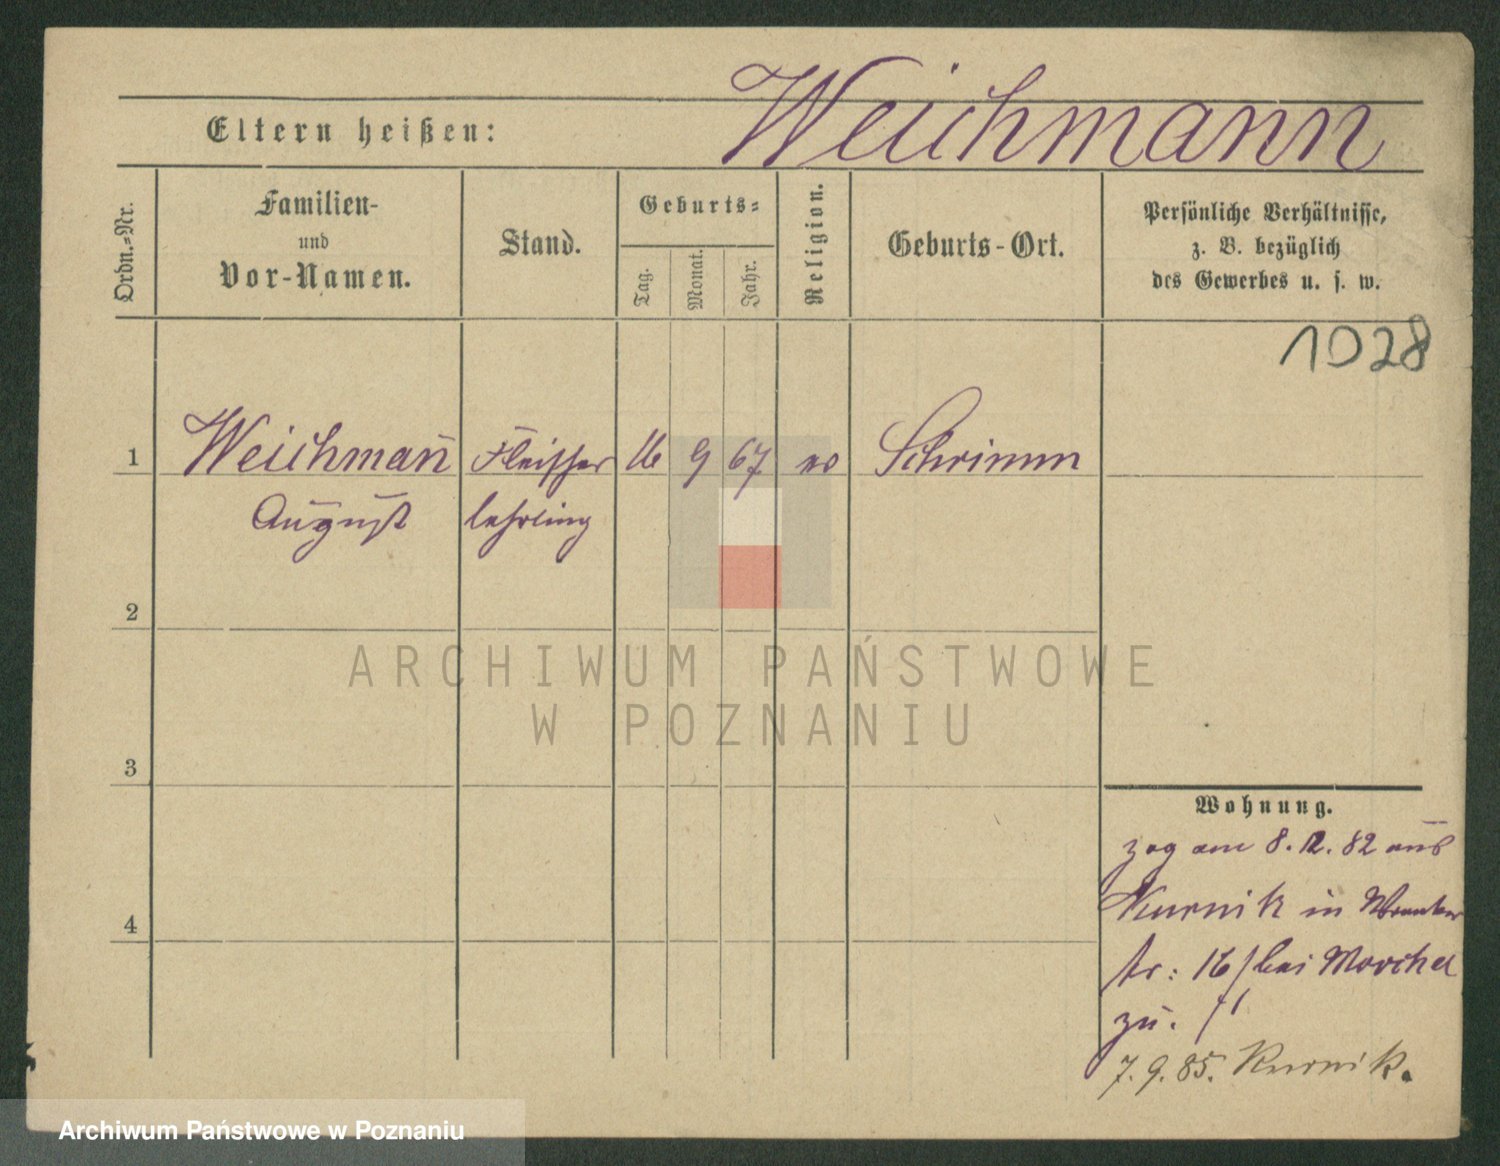 Weichmann
Eltern heißen:
Ordn.=Nr.
Familien-
und
Vor-Namen.
Stand.
Geburts=
Tag.
Monat.
Jahr.
Religion.
Geburts-Ort.
Persönliche Verhältnisse,
z. B. bezüglich
des Gewerbes u. s. w.
1028
1 Weichman̅ Fleischer 16 9 67 ev Schrimm
August lehrling
2
3
4
Wohnung.
zog am 8. 12. 82 aus
Kurnik in
str: 16/1 bei
zu.
7. 9. 85. Kurnik.
ARCHIWUM PAŃSTWOWE
W POZNANIU
Archiwum Państwowe w Poznaniu